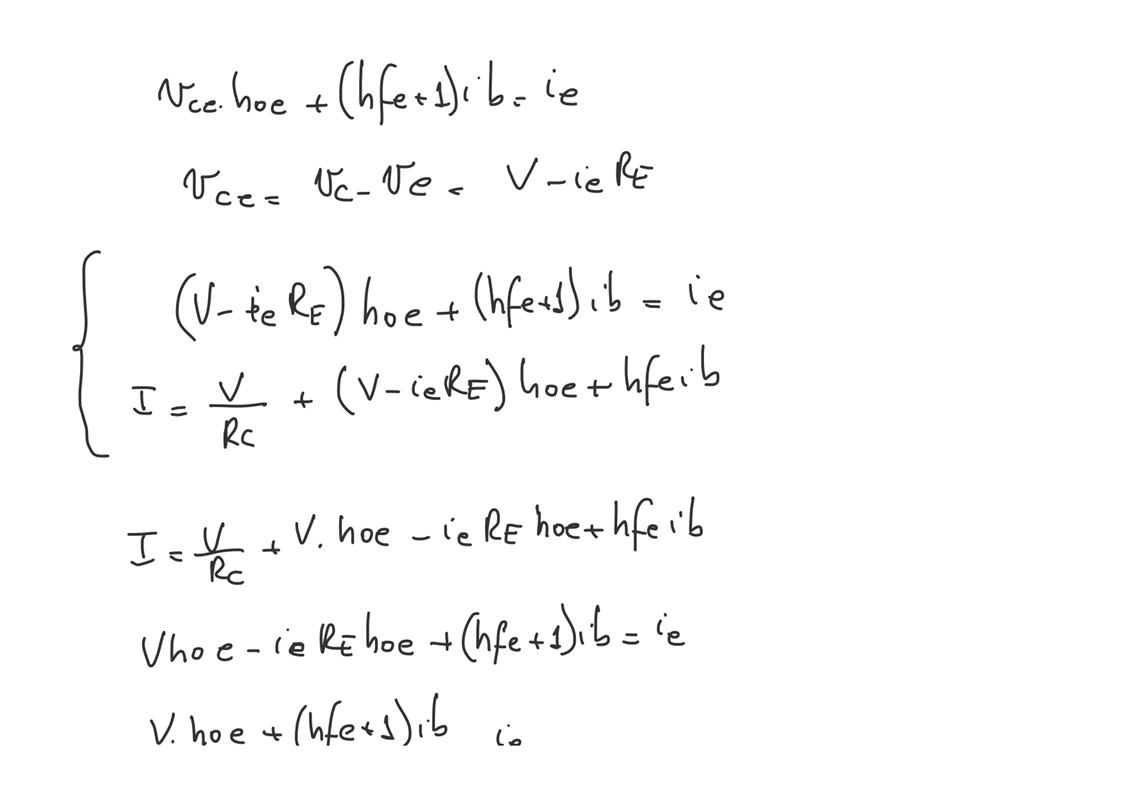 vce. hoe + (hfe+1)ib = ie
vce = vc - ve = V - ieRE
(V - ie RE) hoe + (hfe+1)ib = ie
I = V/RC + (V - ieRE) hoe + hfeib
I = V/RC + V. hoe - ie RE hoe + hfe ib
Vhoe - ie RE hoe + (hfe+1)ib = ie
V. hoe + (hfe+1)ib